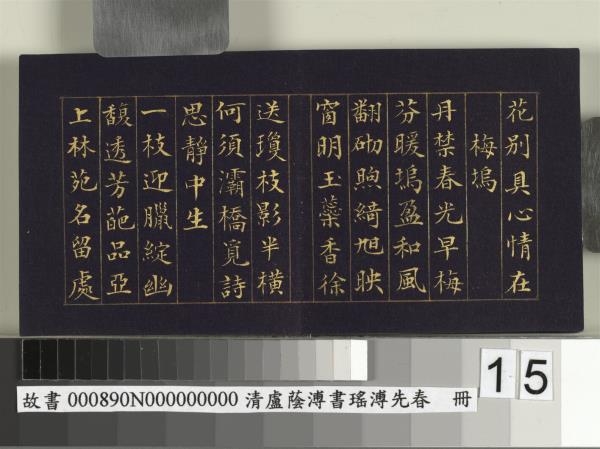 花別具心情在
梅塢
丹禁春光早梅
芬暖塢盈和風
翻砌煦綺旭映
窗明玉蘂香徐
送瓊枝影半橫
何須灞橋覓詩
思靜中生
一枝迎臘綻幽
馥透芳葩品亞
上林苑名留處
15
故書 000890N000000000 清盧蔭溥書瑤溥先春 冊